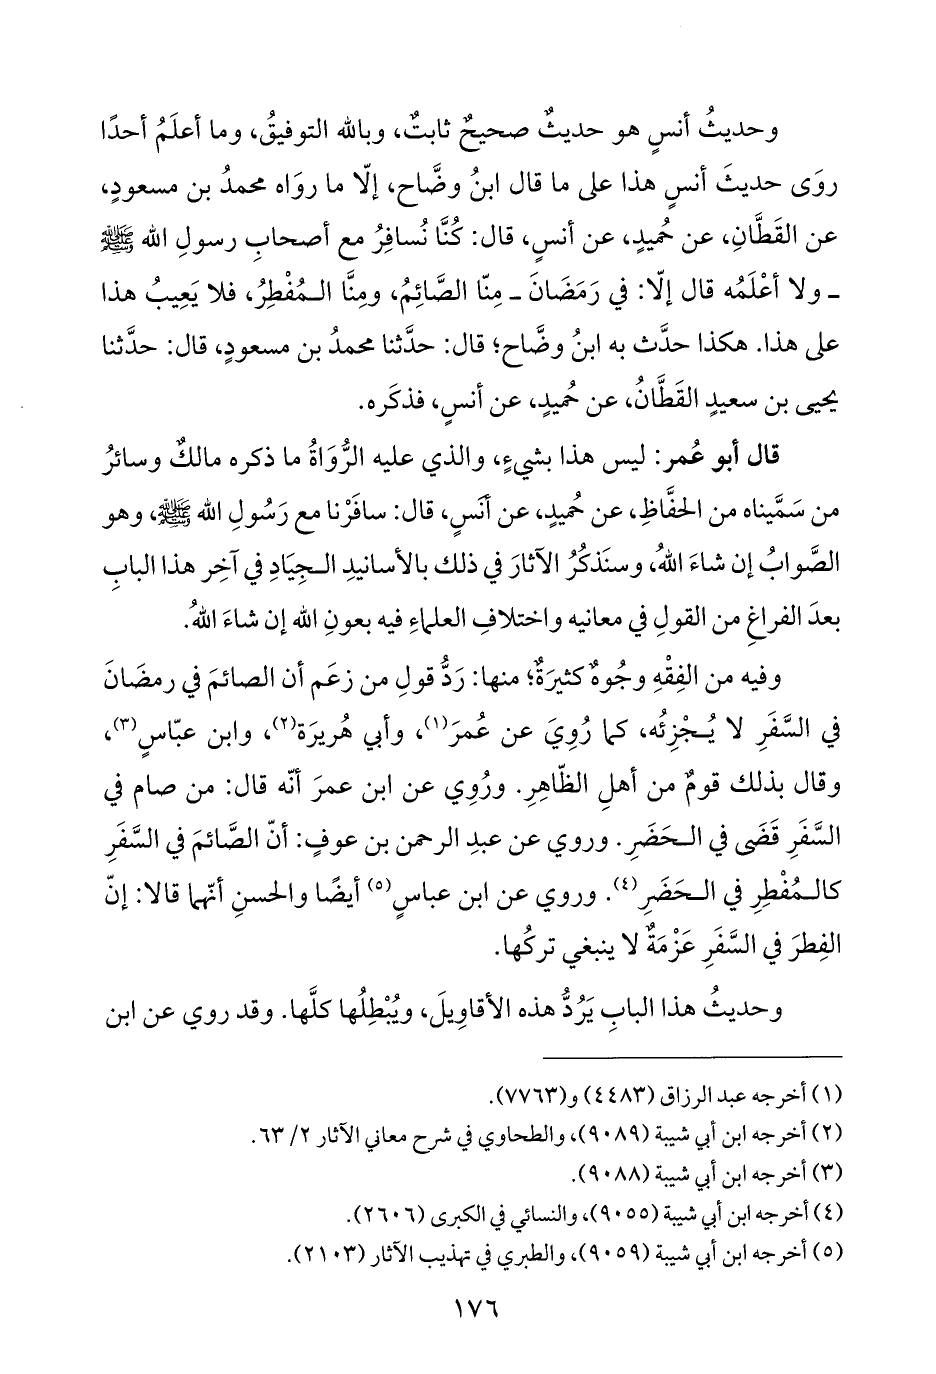 وحديثُ أنسٍ هو حديثٌ صحيحٌ ثابتٌ، وبالله التوفيقُ، وما أعلَمُ أحدًا
روَى حديثَ أنسٍ هذا على ما قال ابنُ وضَّاح، إلّا ما روَاه محمدُ بن مسعودٍ،
عن القَطَّانِ، عن حُميدٍ، عن أنسٍ، قال: كُنَّا نُسافِرُ مع أصحابِ رسولِ الله ﷺ
ـ ولا أعْلَمُه قال إلّا: في رَمَضَانَ ـ مِنّا الصَّائِمُ، ومِنَّا الـمُفْطِرُ، فلا يَعِيبُ هذا
على هذا. هكذا حدَّث به ابنُ وضَّاح؛ قال: حدَّثنا محمدُ بن مسعودٍ، قال: حدَّثنا
يحيى بن سعيدٍ القَطَّانُ، عن حُميدٍ، عن أنسٍ، فذكَره.
قال أبو عُمر: ليس هذا بشيءٍ، والذي عليه الرُّوَاةُ ما ذكره مالكٌ وسائرُ
من سَمَّيناه من الحفَّاظِ، عن حُميدٍ، عن أنَسٍ، قال: سافَرْنا مع رَسُولِ الله ﷺ، وهو
الصَّوابُ إن شاءَ اللهُ، وسنَذكُرُ الآثارَ في ذلك بالأسانيدِ الـجِيَادِ في آخِر هذا البابِ
بعدَ الفراغِ من القولِ في معانيه واختلافِ العلماءِ فيه بعونِ الله إن شاءَ اللهُ.
وفيه من الفِقْهِ وجُوهٌ كثيرَةٌ؛ منها: رَدُّ قولِ من زعَم أن الصائمَ في رمضَانَ
في السَّفَرِ لا يُـجْزِئُه، كما رُوِيَ عن عُمرَ(١)، وأبي هُريرَة(٢)، وابن عبّاسٍ(٣)،
وقال بذلك قومٌ من أهلِ الظّاهِرِ. ورُوِي عن ابن عمرَ أنّه قال: من صام في
السَّفَرِ قَضَى في الـحَضَرِ. وروي عن عبدِ الرحمن بن عوفٍ: أنّ الصَّائمَ في السَّفَرِ
كالـمُفْطِرِ في الـحَضَرِ(٤). وروي عن ابن عباسٍ(٥) أيضًا والحسنِ أنّهما قالا: إنّ
الفِطرَ في السَّفَرِ عَزْمَةٌ لا ينبغي تركُها.
وحديثُ هذا البابِ يَرُدُّ هذه الأقاوِيلَ، ويُبْطِلُها كلَّها. وقد روي عن ابن
(١) أخرجه عبد الرزاق (٤٤٨٣) و(٧٧٦٣).
(٢) أخرجه ابن أبي شيبة (٩٠٨٩)، والطحاوي في شرح معاني الآثار ٢/ ٦٣.
(٣) أخرجه ابن أبي شيبة (٩٠٨٨).
(٤) أخرجه ابن أبي شيبة (٩٠٥٥)، والنسائي في الكبرى (٢٦٠٦).
(٥) أخرجه ابن أبي شيبة (٩٠٥٩)، والطبري في تهذيب الآثار (٢١٠٣).
١٧٦